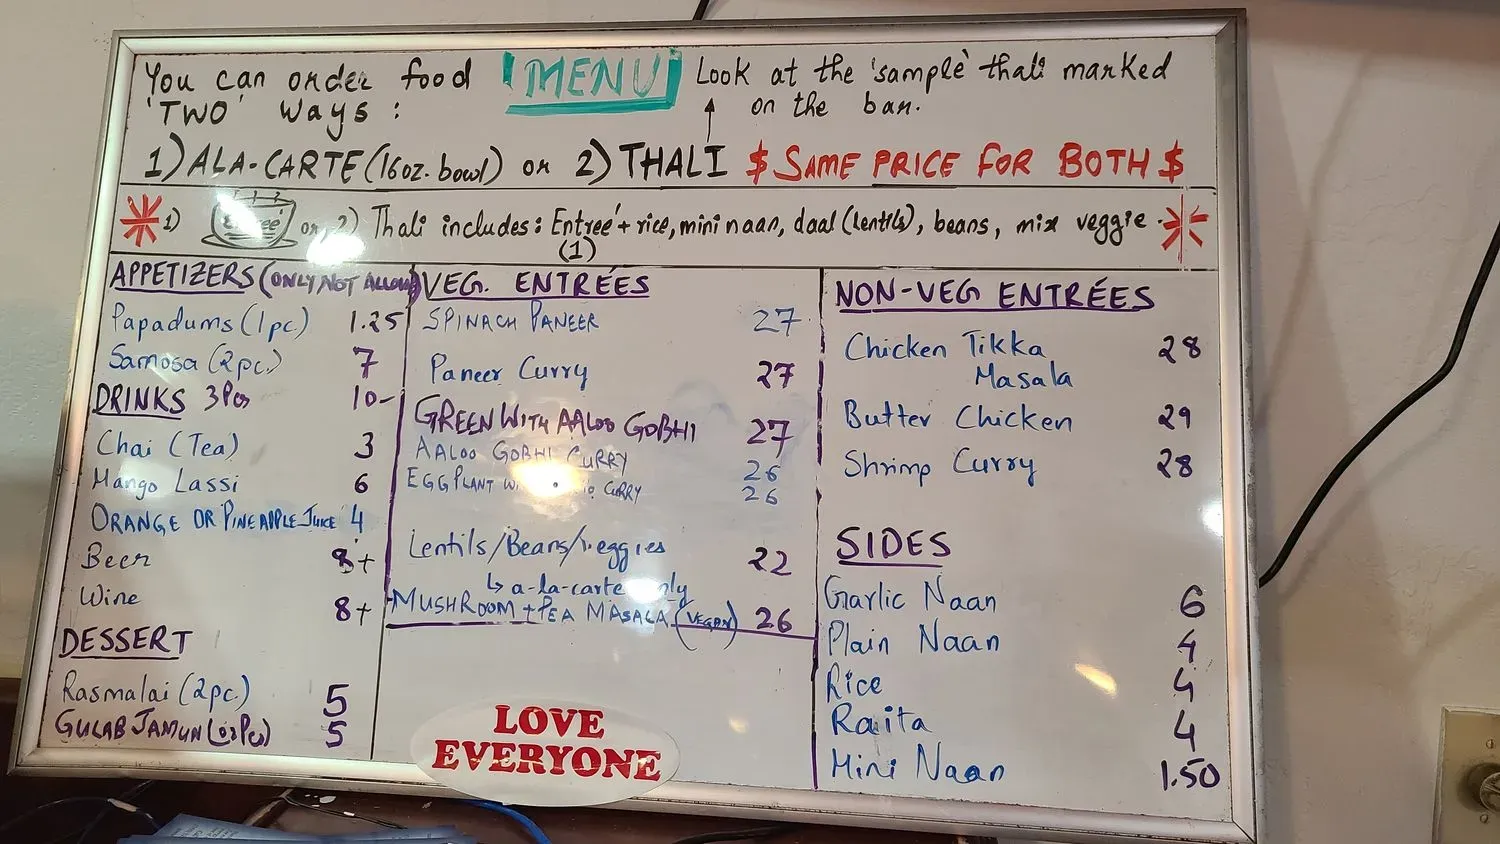 You can order food
'TWO' ways :
MENU
Look at the 'sample' thali marked
on the bar.
1) ALA-CARTE (16oz. bowl) or 2) THALI $ SAME PRICE FOR BOTH $
1) or, 2) Thali includes: Entreé + rice, mini naan, daal (lentils), beans, mix veggie.
(1)
APPETIZERS (ONLY NOT ALLOWED)
Papadums (1pc.) 1.25
Samosa (2pc.) 7
3Pcs 10-
DRINKS
Chai (Tea) 3
Mango Lassi 6
ORANGE OR PINEAPPLE JUICE 4
Beer 8+
Wine 8+
DESSERT
Rasmalai (2pc.) 5
GULAB JAMUN (02Pcs) 5
VEG. ENTRÉES
SPINACH PANEER 27
Paneer Curry 27
GREEN WITH AALOO GOBHI 27
AALOO GOBHI CURRY 26
EGGPLANT CURRY 26
Lentils/Beans/veggies 22
↳ a-la-carte only
MUSHROOM + PEA MASALA (VEGAN) 26
NON-VEG ENTRÉES
Chicken Tikka 28
Masala
Butter Chicken 29
Shrimp Curry 28
SIDES
Garlic Naan 6
Plain Naan 4
Rice 4
Raita 4
Mini Naan 1.50
LOVE
EVERYONE